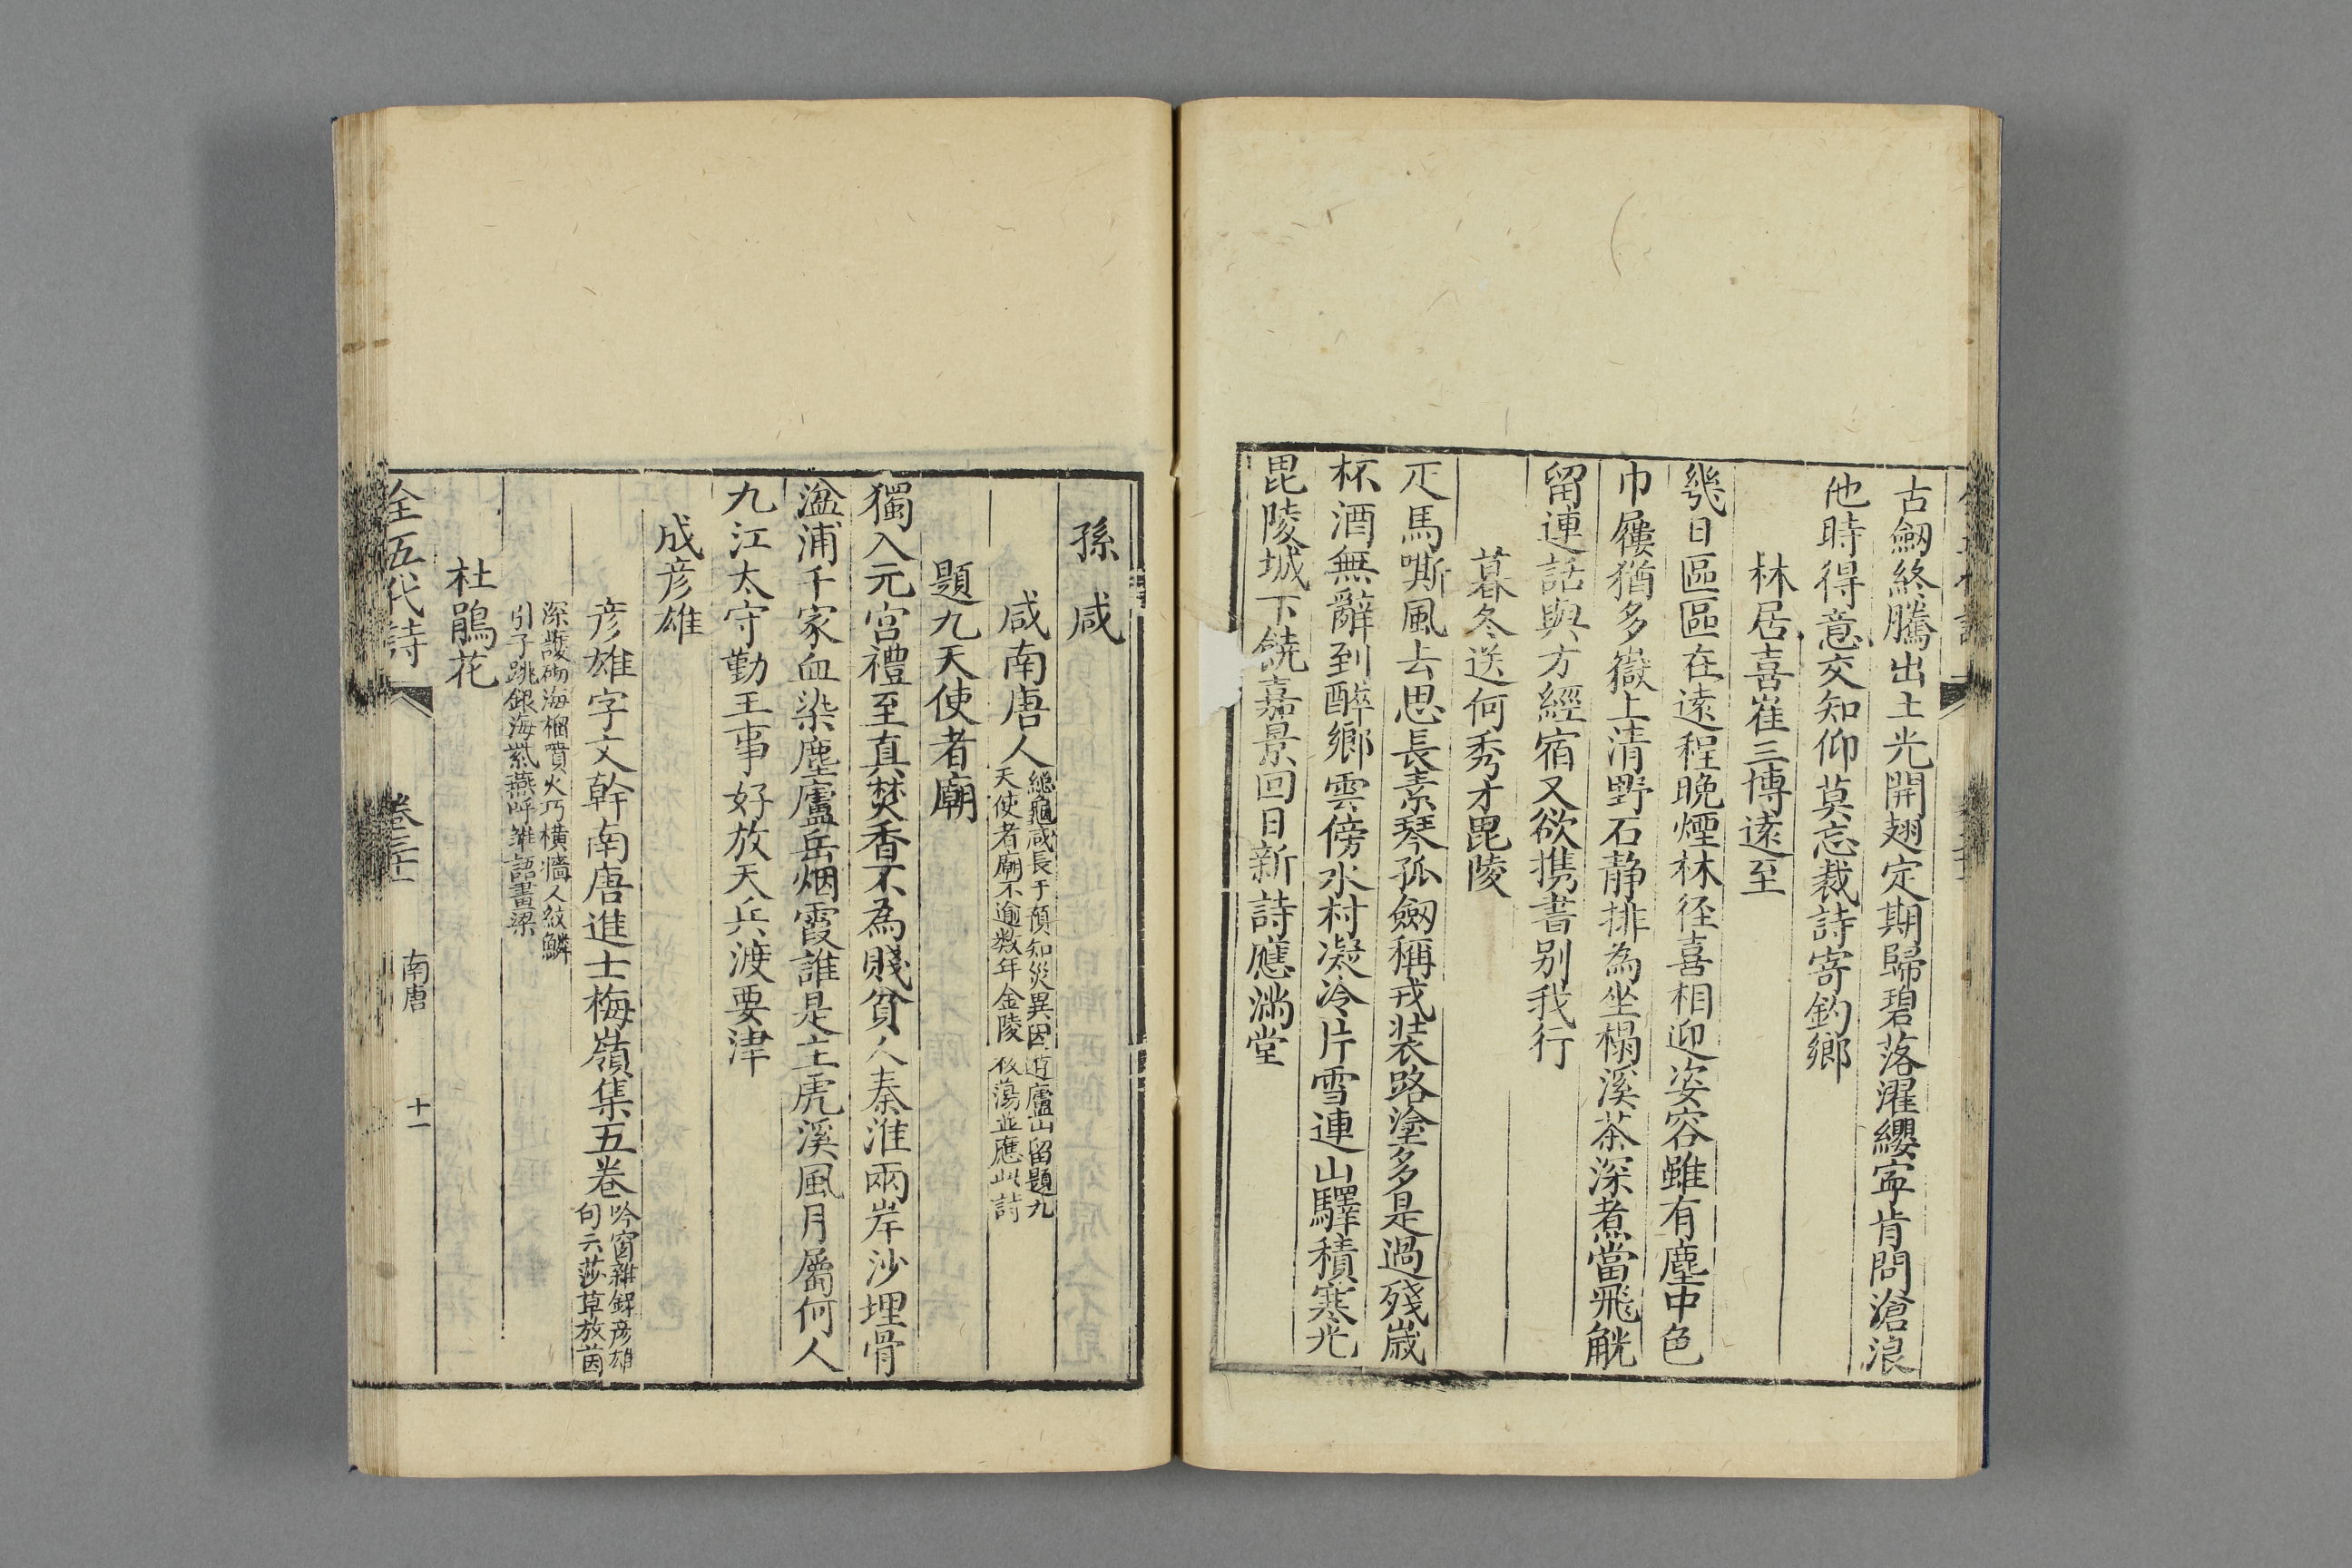 古劒終騰出土光開翅定期歸碧落濯纓寧肯問滄浪
他時得意交知仰莫忘裁詩寄釣鄉
林居喜崔三博遠至
幾日區區在遠程晚煙林徑喜相迎姿容雖有塵中色
巾屨猶多嶽上清野石静排為坐榻溪茶深煮當飛觥
留連話與方經宿又欲携書别我行
暮冬送何秀才毘陵
疋馬嘶風去思長素琴孤劒稱戎装路塗多是過殘歲
杯酒無辭到醉鄉雲傍水村凝冷片雪連山驛積寒光
毘陵城下饒嘉景回日新詩應滿堂
孫咸
咸南唐人
總龜咸長于預知災異因遊廬山留題九
天使者廟不逾数年金陵板蕩並應此詩
題九天使者廟
獨入元宫禮至真焚香不為賤貧人秦淮兩岸沙埋骨
湓浦千家血染塵廬岳烟霞誰是主虎溪風月屬何人
九江太守勤王事好放天兵渡要津
成彦雄
彦雄字文幹南唐進士梅嶺集五卷
吟窗雜録彦雄
句云莎草放茵
深護砌海榴噴火巧横牆人紋鱗
引子跳銀海紫燕呼雛語畫梁
杜鵑花
全五代詩 卷三十 南唐 十一